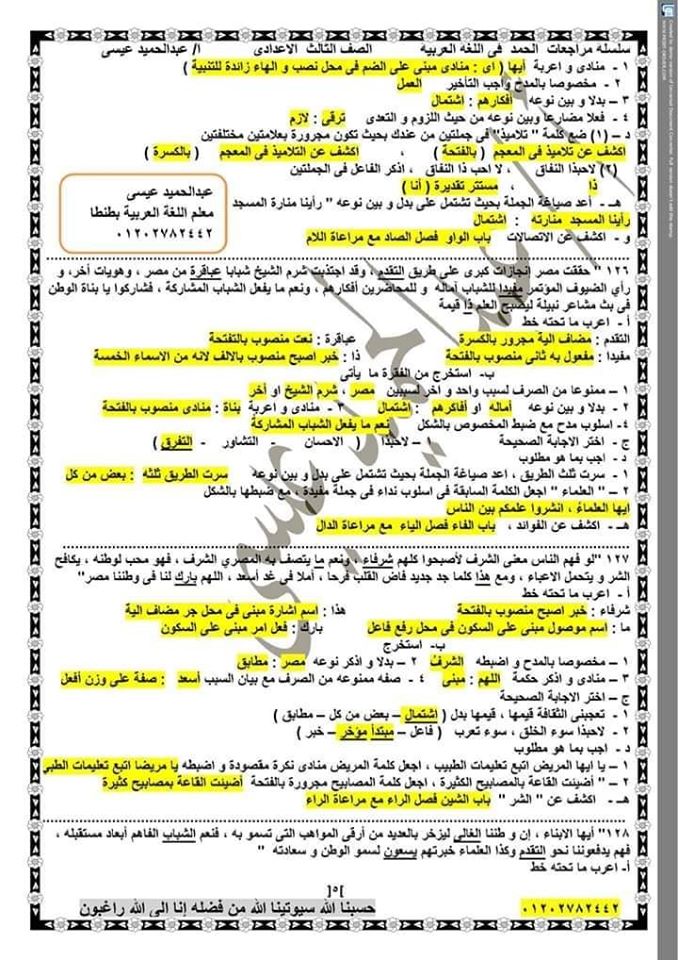 سلسله مراجعات الحمد فى اللغه العربيه الصف الثالث الاعدادى أ/ عبدالحميد عيسى
١ - منادى و اعربة أيها ( اى : منادى مبنى على الضم فى محل نصب و الهاء زائدة للتنبية )
٢ - مخصوصا بالمدح واجب التأخير العمل
٣ - بدلا و بين نوعه أفكارهم : اشتمال
٤ - فعلا مضارعا وبين نوعه من حيث اللزوم و التعدى ترقى : لازم
د - (١) ضع كلمة " تلاميذ" فى جملتين من عندك بحيث تكون مجرورة بعلامتين مختلفتين
اكشف عن تلاميذ فى المعجم ( بالفتحة ) ، اكشف عن التلاميذ فى المعجم ( بالكسرة )
(٢) لاحبذا النفاق ، لا احب ذا النفاق ، اذكر الفاعل فى الجملتين
ذا ، مستتر تقديرة ( أنا )
هـ - أعد صياغة الجملة بحيث تشتمل على بدل و بين نوعه " رأينا منارة المسجد
رأينا المسجد منارته : اشتمال
و - اكشف عن الاتصالات باب الواو فصل الصاد مع مراعاة اللام
عبدالحميد عيسى
معلم اللغة العربية بطنطا
٠١٢٠٢٧٨٢٤٤٢
١٢٦ " حققت مصر إنجازات كبرى على طريق التقدم ، وقد اجتذبت شرم الشيخ شبابا عباقرة من مصر ، وهويات أخر، و
رأي الضيوف المؤتمر مفيدا للشباب أماله و للمحاضرين أفكارهم ، ونعم ما يفعل الشباب المشاركة ، فشاركوا يا بناة الوطن
فى بث مشاعر نبيلة ليصبح العلم ذا قيمة
أ - اعرب ما تحته خط
التقدم : مضاف الية مجرور بالكسرة عباقرة : نعت منصوب بالفتحة
مفيدا : مفعول به ثانى منصوب بالفتحة ذا : خبر اصبح منصوب بالالف لانه من الاسماء الخمسة
ب- استخرج من الفقرة ما يأتى
١ - ممنوعا من الصرف لسبب واحد و اخر لسببين مصر ، شرم الشيخ او أخر
٢ - بدلا و بين نوعه أماله او أفاكرهم : اشتمال ٣ - منادى و اعربة بناة : منادى منصوب بالفتحة
٤- اسلوب مدح مع ضبط المخصوص بالشكل نعم ما يفعل الشباب المشاركة
ج - اختر الاجابة الصحيحة ١ - لاحبذا ( الاحسان - التشاور - التفرق )
د - اجب بما هو مطلوب
١ - سرت ثلث الطريق ، اعد صياغة الجملة بحيث تشتمل على بدل و بين نوعه سرت الطريق ثلثه : بعض من كل
٢ - " العلماء " اجعل الكلمة السابقة فى اسلوب نداء فى جملة مفيدة ، مع ضبطها بالشكل
ايها العلماءُ ، انشروا علمكم بين الناس
هـ - اكشف عن الفوائد ، باب الفاء فصل الياء مع مراعاة الدال
١٢٧ "لو فهم الناس معنى الشرف لأصبحوا كلهم شرفاء ، ونعم ما يتصف به المصري الشرف ، فهو محب لوطنه ، يكافح
الشر و يتحمل الاعباء ، ومع هذا كلما جد جديد فاض القلب فرحا ، أملا فى غد أسعد ، اللهم بارك لنا فى وطننا مصر"
أ - اعرب ما تحته خط
شرفاء : خبر اصبح منصوب بالفتحة هذا : اسم اشارة مبنى فى محل جر مضاف الية
ما : اسم موصول مبنى على السكون فى محل رفع فاعل بارك : فعل امر مبنى على السكون
ب- استخرج
١ - مخصوصا بالمدح و اضبطه الشرفُ ٢ - بدلا و اذكر نوعه مصر : مطابق
٣ - منادى و اذكر حكمة اللهم : مبنى ٤ - صفه ممنوعه من الصرف مع بيان السبب أسعد : صفة على وزن أفعل
ج - اختر الاجابة الصحيحة
١ - تعجبنى الثقافة قيمها ، قيمها بدل ( اشتمال - بعض من كل - مطابق )
٢ - لاحبذا سوء الخلق ، سوء تعرب ( فاعل - مبتدأ مؤخر - خبر )
د - اجب بما هو مطلوب
١ - يا ايها المريض اتبع تعليمات الطبيب ، اجعل كلمة المريض منادى نكرة مقصودة و اضبطه يا مريضا اتبع تعليمات الطبي
٢ - " أضيئت القاعة بالمصابيح الكثيرة ، اجعل كلمة المصابيح مجرورة بالفتحة أضيئت القاعة بمصابيح كثيرة
هـ - اكشف عن " الشر " باب الشين فصل الراء مع مراعاة الراء
١٢٨" أيها الابناء ، إن و طننا الغالى ليزخر بالعديد من أرقى المواهب التى تسمو به ، فنعم الشباب الفاهم أبعاد مستقبله ،
فهم يدفعوننا نحو التقدم وكذا العلماء خبرتهم يسعون لسمو الوطن و سعادته "
أ- اعرب ما تحته خط
[٥]
٠١٢٠٢٧٨٢٤٤٢ حسبنا الله سيوتينا الله من فضله إنا الى الله راغبون
أ/ عبدالحميد عيسى